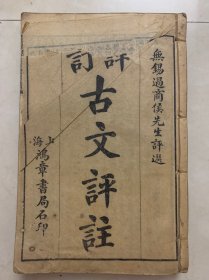 無錫過商侯先生評選
評訂
古文評註
上海鴻章書局石印